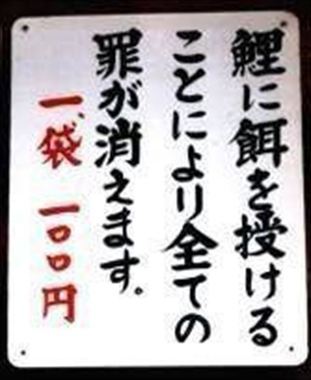 鯉に餌を授ける
ことにより全ての
罪が消えます。
一袋 一〇〇円